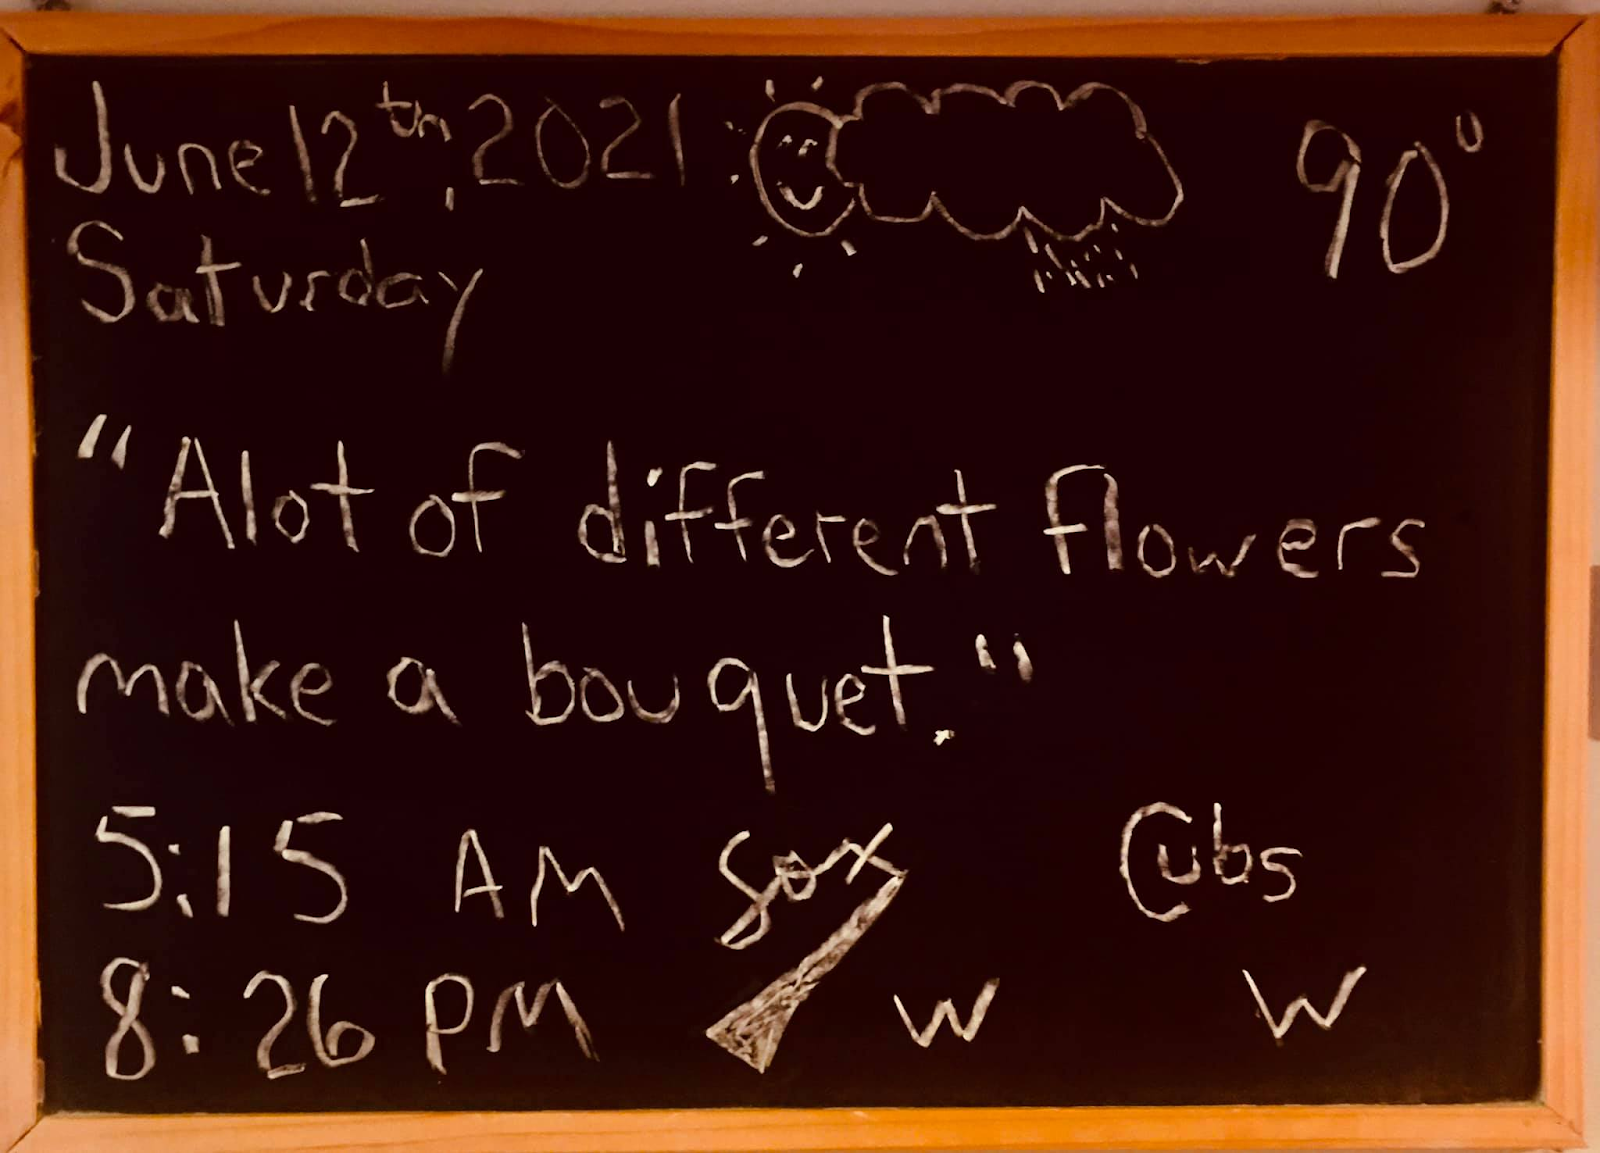 June 12th, 2021 90°
Saturday
"Alot of different flowers
make a bouquet."
5:15 AM Sox Cubs
8:26 PM W W